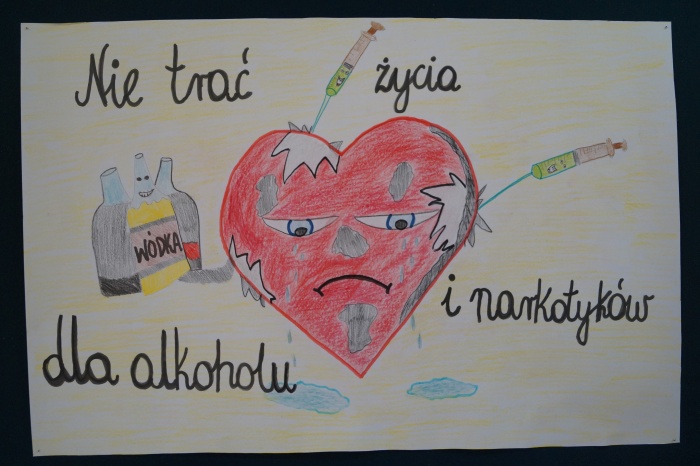 Nie trać życia
WÓDKA
i narkotyków
dla alkoholu